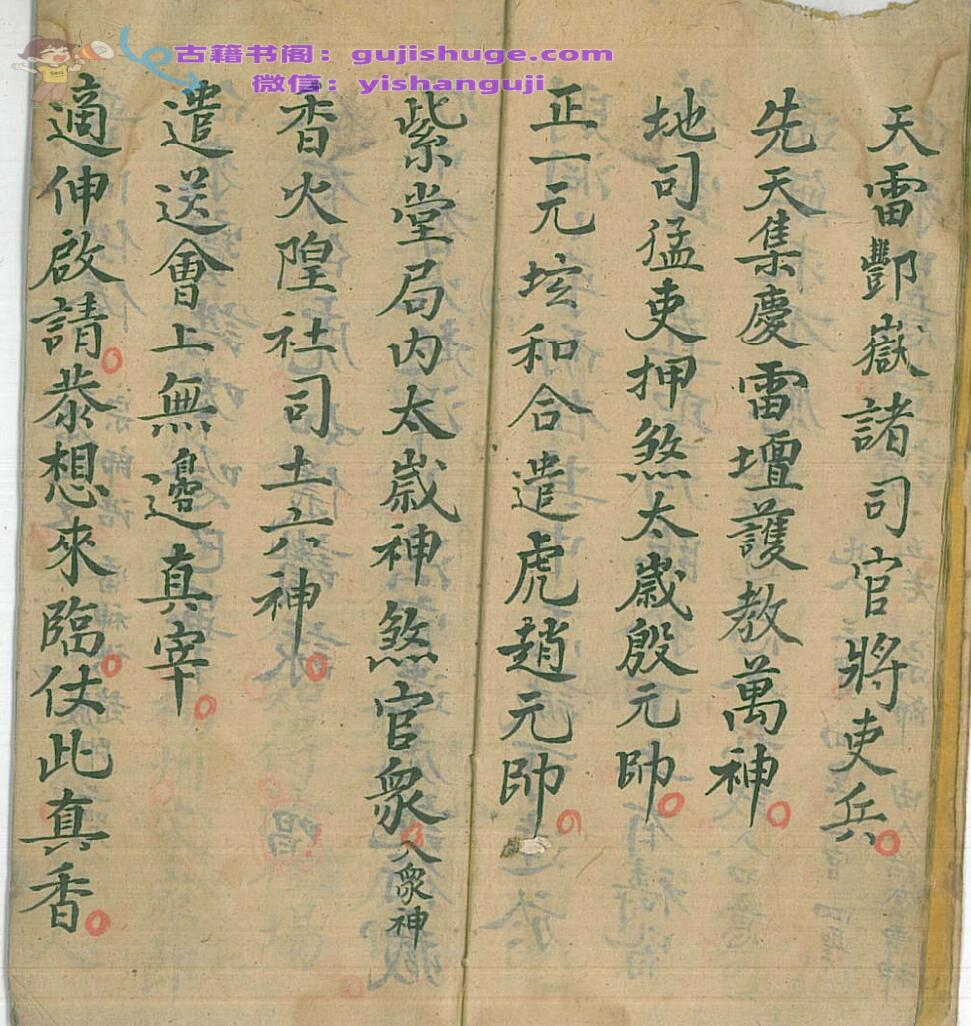 古籍书阁：gujishuge.com
微信：yishanguji
天雷酆嶽諸司官將吏兵。
先天集慶雷壇護教萬神。
地司猛吏押煞太歲殷元帥。
正一元坛和合遣虎趙元帥。
紫堂局内太歲神煞官衆。入衆神
香火隍社司土六神。
遣送會上無邊真宰。
適伸啟請。恭想來臨。仗此真香。